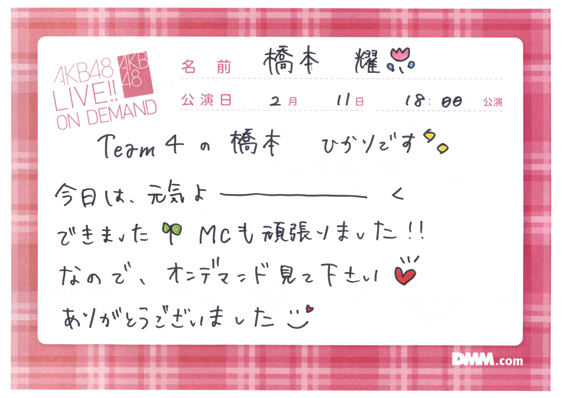 AKB48
LIVE!!
ON DEMAND
AKB
48
名前 橋本 耀
公演日 2月 11日 18:00 公演
Team 4 の 橋本 ひかりです
今日は、元気よ―――く
できました MCも頑張りました!!
なので、オンデマンド見て下さい
ありがとうございました
DMM.com